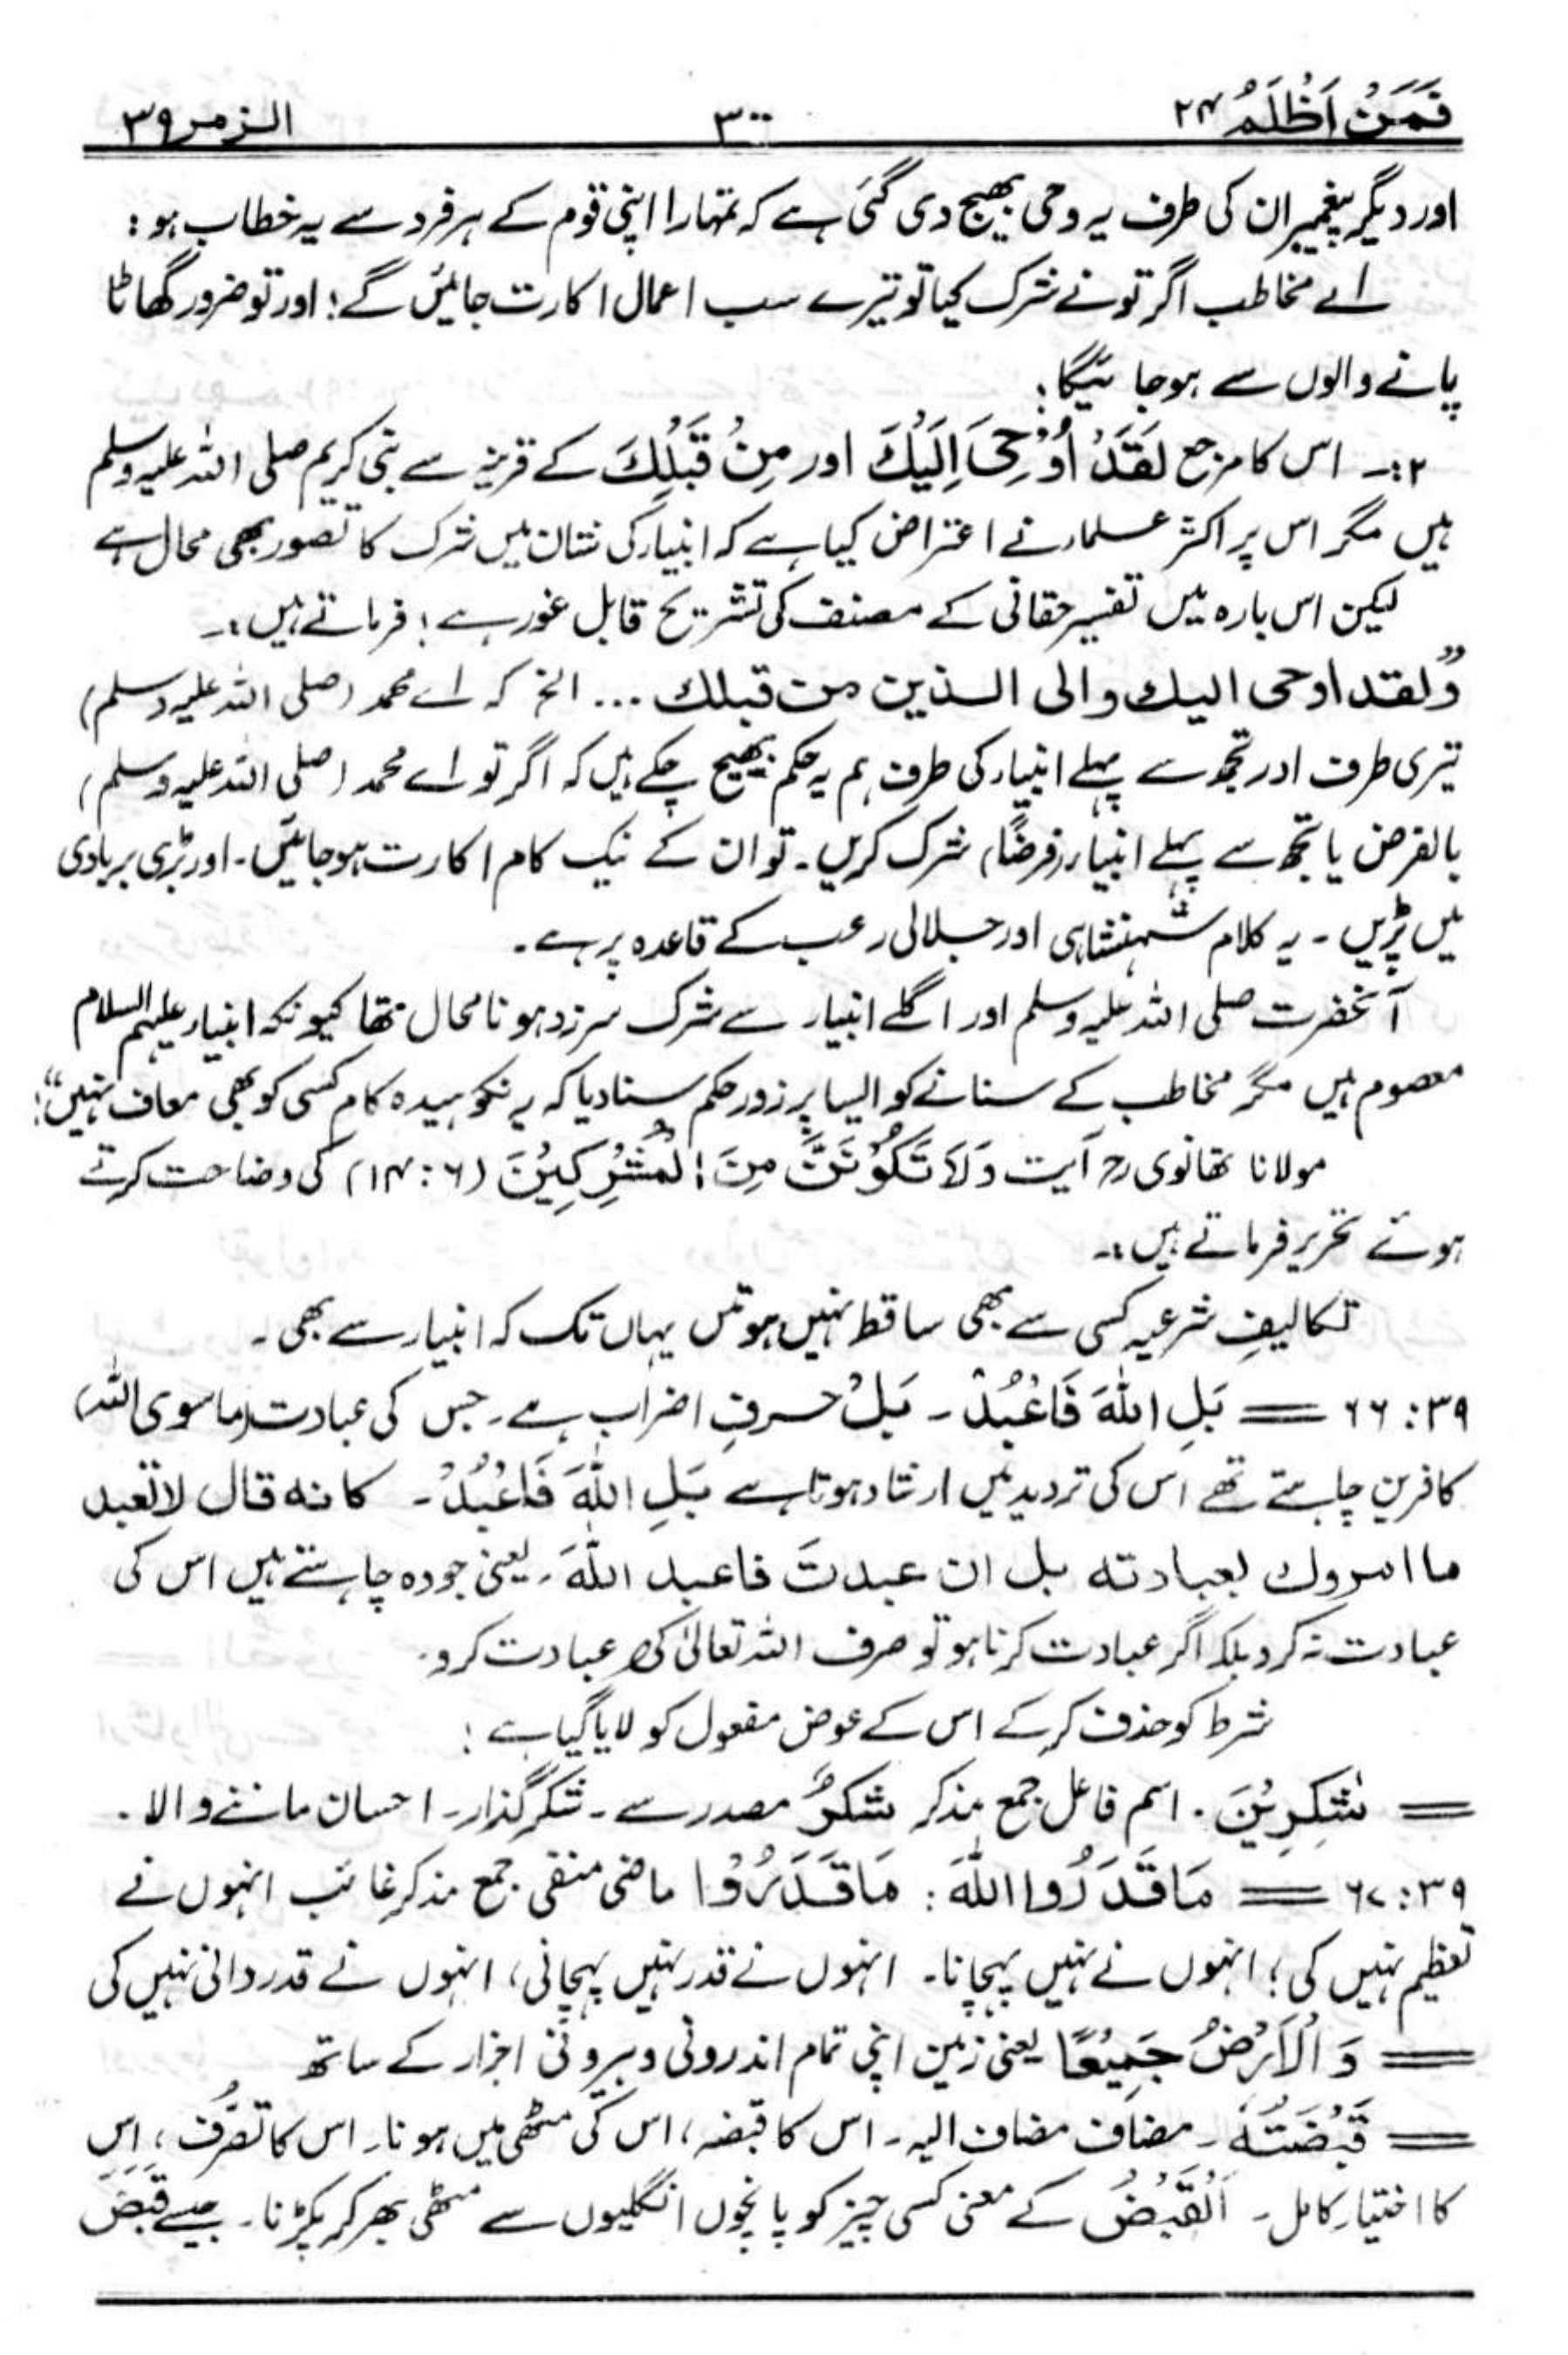 فَمَنْ اَظْلَمُ ۲۴ ۳۰۰ الزمر ۳۹
اور دیگر پیغمبران کی طرف یہ وحی بھیج دی گئی ہے کہ تمہارا اپنی قوم کے ہر فرد سے یہ خطاب ہو:
اے مخاطب اگر تو نے شرک کیا تو تیرے سب اعمال اکارت جائیں گے؛ اور تو ضرور گھاٹا
پانے والوں سے ہو جائیگا؛
۲:۔ اس کا مرجع لَقَدْ اُوْحِیَ اِلَیْكَ اور مِنْ قَبْلِكَ کے قرینہ سے نبی کریم صلی اللہ علیہ وسلم
ہیں مگر اس پر اکثر علماء نے اعتراض کیا ہے کہ انبیاء کی شان میں شرک کا تصور بھی محال ہے
لیکن اس بارہ میں تفسیر حقانی کے مصنف کی تشریح قابل غور ہے؛ فرماتے ہیں:۔
”ولقد اوحی الیك والی الذین من قبلك ... الخ کہ اے محمد (صلی اللہ علیہ وسلم)
تیری طرف اور تجھ سے پہلے انبیاء کی طرف ہم یہ حکم بھیج چکے ہیں کہ اگر تو اے محمد (صلی اللہ علیہ وسلم)
بالفرض یا تجھ سے پہلے انبیاء (فرضًا) شرک کریں۔ تو ان کے نیک کام اکارت ہو جائیں۔ اور بڑی بربادی
میں پڑیں۔ یہ کلام شہنشاہی اور جلالی رعب کے قاعدہ پر ہے۔
آنحضرت صلی اللہ علیہ وسلم اور اگلے انبیاء سے شرک سرزد ہونا محال تھا کیونکہ انبیاء علیہم السلام
معصوم ہیں مگر مخاطب کے سنانے کو ایسا پر زور حکم سنا دیا کہ یہ نکوہیدہ کام کسی کو بھی معاف نہیں“؛
مولانا تھانوی رح آیت وَلَا تَكُوْنَنَّ مِنَ الْمُشْرِكِیْنَ (۶:۱۴) کی وضاحت کرتے
ہوئے تحریر فرماتے ہیں:۔
تکالیفِ شرعیہ کسی سے بھی ساقط نہیں ہوتیں یہاں تک کہ انبیاء سے بھی۔
۳۹:۶۶ = بَلِ اللّٰهَ فَاعْبُدْ۔ بَلْ حرفِ اضراب ہے۔ جس کی عبادت (ما سوی اللہ)
کافرین چاہتے تھے اس کی تردید میں ارشاد ہوتا ہے بَلِ اللّٰهَ فَاعْبُدْ۔ كانه قال لا تعبد
ما امروك بعبادته بل ان عبدتَ فاعبد اللّٰهَ۔ یعنی جو وہ چاہتے ہیں اس کی
عبادت نہ کرو بلکہ اگر عبادت کرنا ہو تو صرف اللہ تعالیٰ کی عبادت کرو۔
شرط کو حذف کر کے اس کے عوض مفعول کو لایا گیا ہے؛
= شٰكِرِیْنَ۔ اسم فاعل جمع مذکر شُكْرٌ مصدر سے۔ شکر گذار۔ احسان ماننے والا۔
۳۹:۶۷ = مَا قَدَرُوا اللّٰهَ: مَا قَدَرُوْا ماضی منفی جمع مذکر غائب انہوں نے
تعظیم نہیں کی؛ انہوں نے نہیں پہچانا۔ انہوں نے قدر نہیں پہچانی، انہوں نے قدر دانی نہیں کی
= وَالْاَرْضُ جَمِیْعًا یعنی زمین اپنی تمام اندرونی و بیرونی اجزاء کے ساتھ
= قَبْضَتُهٗ۔ مضاف مضاف الیہ۔ اس کا قبضہ، اس کی مٹھی میں ہونا۔ اس کا تصرُّف، اس
کا اختیار کامل۔ اَلْقَبْضُ کے معنی کسی چیز کو پانچوں انگلیوں سے مٹھی بھر کر پکڑنا۔ جیسے قَبَضَ